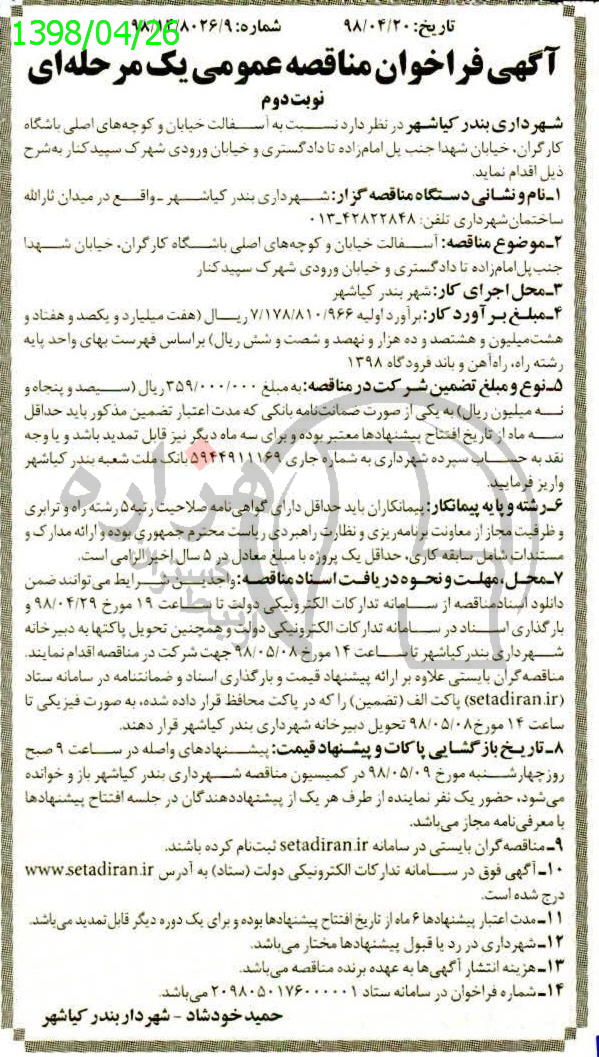 تاریخ: ۹۸/۰۴/۲۰ شماره: ۹۸/۱۴/۸۰۲۶/۹
1398/04/26
آگهی فراخوان مناقصه عمومی یک مرحله‌ای
نوبت دوم
شهرداری بندر کیاشهر در نظر دارد نسبت به آسفالت خیابان و کوچه‌های اصلی باشگاه
کارگران، خیابان شهدا جنب پل امامزاده تا دادگستری و خیابان ورودی شهرک سپیدکنار به‌شرح
ذیل اقدام نماید.
۱ـ نام و نشانی دستگاه مناقصه گزار: شهرداری بندر کیاشهر ـ واقع در میدان ثارالله
ساختمان شهرداری تلفن: ۴۲۸۲۲۸۴۸ـ۰۱۳
۲ـ موضوع مناقصه: آسفالت خیابان و کوچه‌های اصلی باشگاه کارگران، خیابان شهدا
جنب پل امام‌زاده تا دادگستری و خیابان ورودی شهرک سپیدکنار
۳ـ محل اجرای کار: شهر بندر کیاشهر
۴ـ مبلغ برآورد کار: برآورد اولیه ۷/۱۷۸/۸۱۰/۹۶۶ ریال (هفت میلیارد و یکصد و هفتاد و
هشت‌میلیون و هشتصد و ده هزار و نهصد و شصت و شش ریال) براساس فهرست بهای واحد پایه
رشته راه، راه‌آهن و باند فرودگاه ۱۳۹۸
۵ـ نوع و مبلغ تضمین شرکت در مناقصه: به مبلغ ۳۵۹/۰۰۰/۰۰۰ ریال (سیصد و پنجاه و
نه میلیون ریال) به یکی از صورت ضمانت‌نامه بانکی که مدت اعتبار تضمین مذکور باید حداقل
سه ماه از تاریخ افتتاح پیشنهادها معتبر بوده و برای سه ماه دیگر نیز قابل تمدید باشد و یا وجه
نقد به حساب سپرده شهرداری به شماره جاری ۵۹۴۴۹۱۱۱۶۹ بانک ملت شعبه بندر کیاشهر
واریز فرمایید.
۶ـ رشته و پایه پیمانکار: پیمانکاران باید حداقل دارای گواهی‌نامه صلاحیت رتبه ۵ رشته راه و ترابری
و ظرفیت مجاز از معاونت برنامه‌ریزی و نظارت راهبردی ریاست محترم جمهوری بوده و ارائه مدارک و
مستندات شامل سابقه کاری، حداقل یک پروژه با مبلغ معادل در ۵ سال اخیر الزامی است.
۷ـ محل، مهلت و نحوه دریافت اسناد مناقصه: واجدین شرایط می‌توانند ضمن
دانلود اسناد مناقصه از سامانه تدارکات الکترونیکی دولت تا ساعت ۱۹ مورخ ۹۸/۰۴/۲۹ و
بارگذاری اسناد در سامانه تدارکات الکترونیکی دولت و همچنین تحویل پاکتها به دبیرخانه
شهرداری بندر کیاشهر تا ساعت ۱۴ مورخ ۹۸/۰۵/۰۸ جهت شرکت در مناقصه اقدام نمایند.
مناقصه‌گران بایستی علاوه بر ارائه پیشنهاد قیمت و بارگذاری اسناد و ضمانتنامه در سامانه ستاد
(setadiran.ir) پاکت الف (تضمین) را که در پاکت محافظ قرار داده شده، به صورت فیزیکی تا
ساعت ۱۴ مورخ ۹۸/۰۵/۰۸ تحویل دبیرخانه شهرداری بندر کیاشهر قرار دهند.
۸ـ تاریخ بازگشایی پاکات و پیشنهاد قیمت: پیشنهادهای واصله در ساعت ۹ صبح
روز چهارشنبه مورخ ۹۸/۰۵/۰۹ در کمیسیون مناقصه شهرداری بندر کیاشهر باز و خوانده
می‌شود، حضور یک نفر نماینده از طرف هر یک از پیشنهاددهندگان در جلسه افتتاح پیشنهادها
با معرفی‌نامه مجاز می‌باشد.
۹ـ مناقصه‌گران بایستی در سامانه setadiran.ir ثبت‌نام کرده باشند.
۱۰ـ آگهی فوق در سامانه تدارکات الکترونیکی دولت (ستاد) به آدرس www.setadiran.ir
درج شده است.
۱۱ـ مدت اعتبار پیشنهادها ۶ ماه از تاریخ افتتاح پیشنهادها بوده و برای یک دوره دیگر قابل تمدید می‌باشد.
۱۲ـ شهرداری در رد یا قبول پیشنهادها مختار می‌باشد.
۱۳ـ هزینه انتشار آگهی‌ها به عهده برنده مناقصه می‌باشد.
۱۴ـ شماره فراخوان در سامانه ستاد ۲۰۹۸۰۵۰۱۷۶۰۰۰۰۰۱ می‌باشد.
حمید خودشاد - شهردار بندر کیاشهر